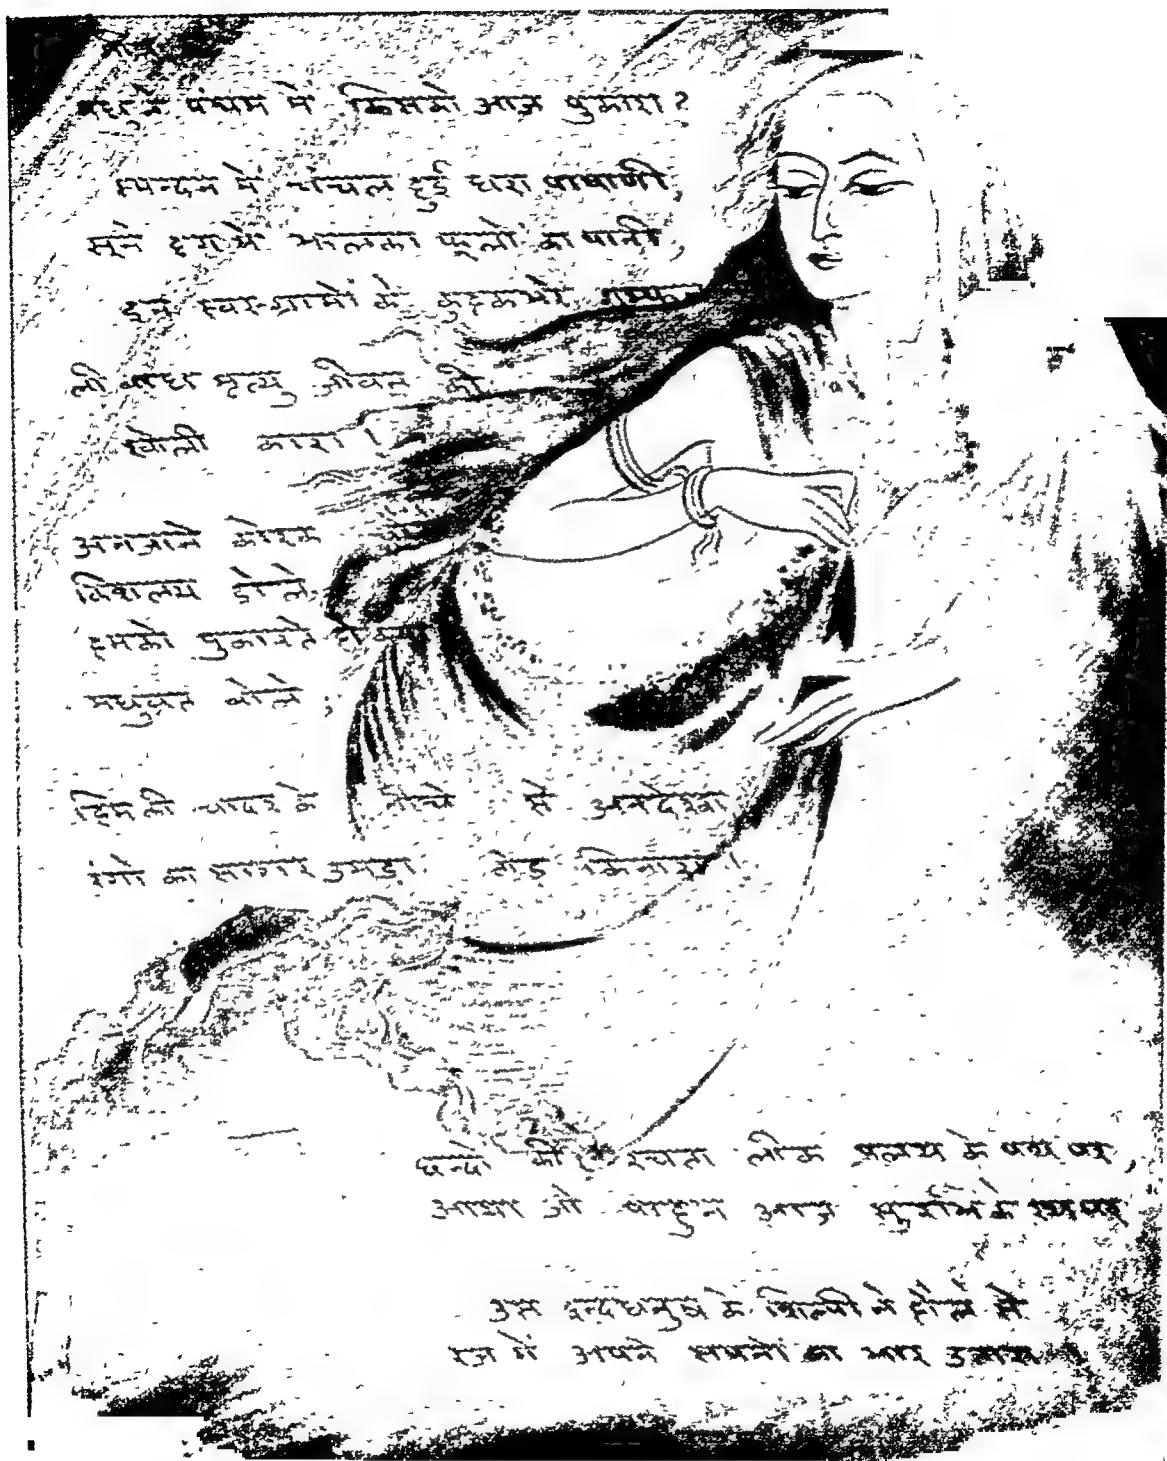 पंचम में किसको आज पुकारा?
स्पन्दन में चंचल हुई धरा पाषाणी,
सूने दृग में झलका फूलों का पानी,
इन स्वर-ग्रामों के
मृत्यु जीवन की
खोली कारा।
अनजाने कोरक
किशलय डोले,
हमको पुकारते
मधुवन बोले,
हिम की चादर के नीचे से अनदेखा
रंगों का सागर उमड़ा तोड़ किनारा।
छन्दों की रचता लीक प्रलय के पथ पर,
आया जो पाहुन आज सुरभि के रथ पर
उस इन्द्रधनुष के शिल्पी ने हौले से
रज में अपने सपनों का भार उतारा